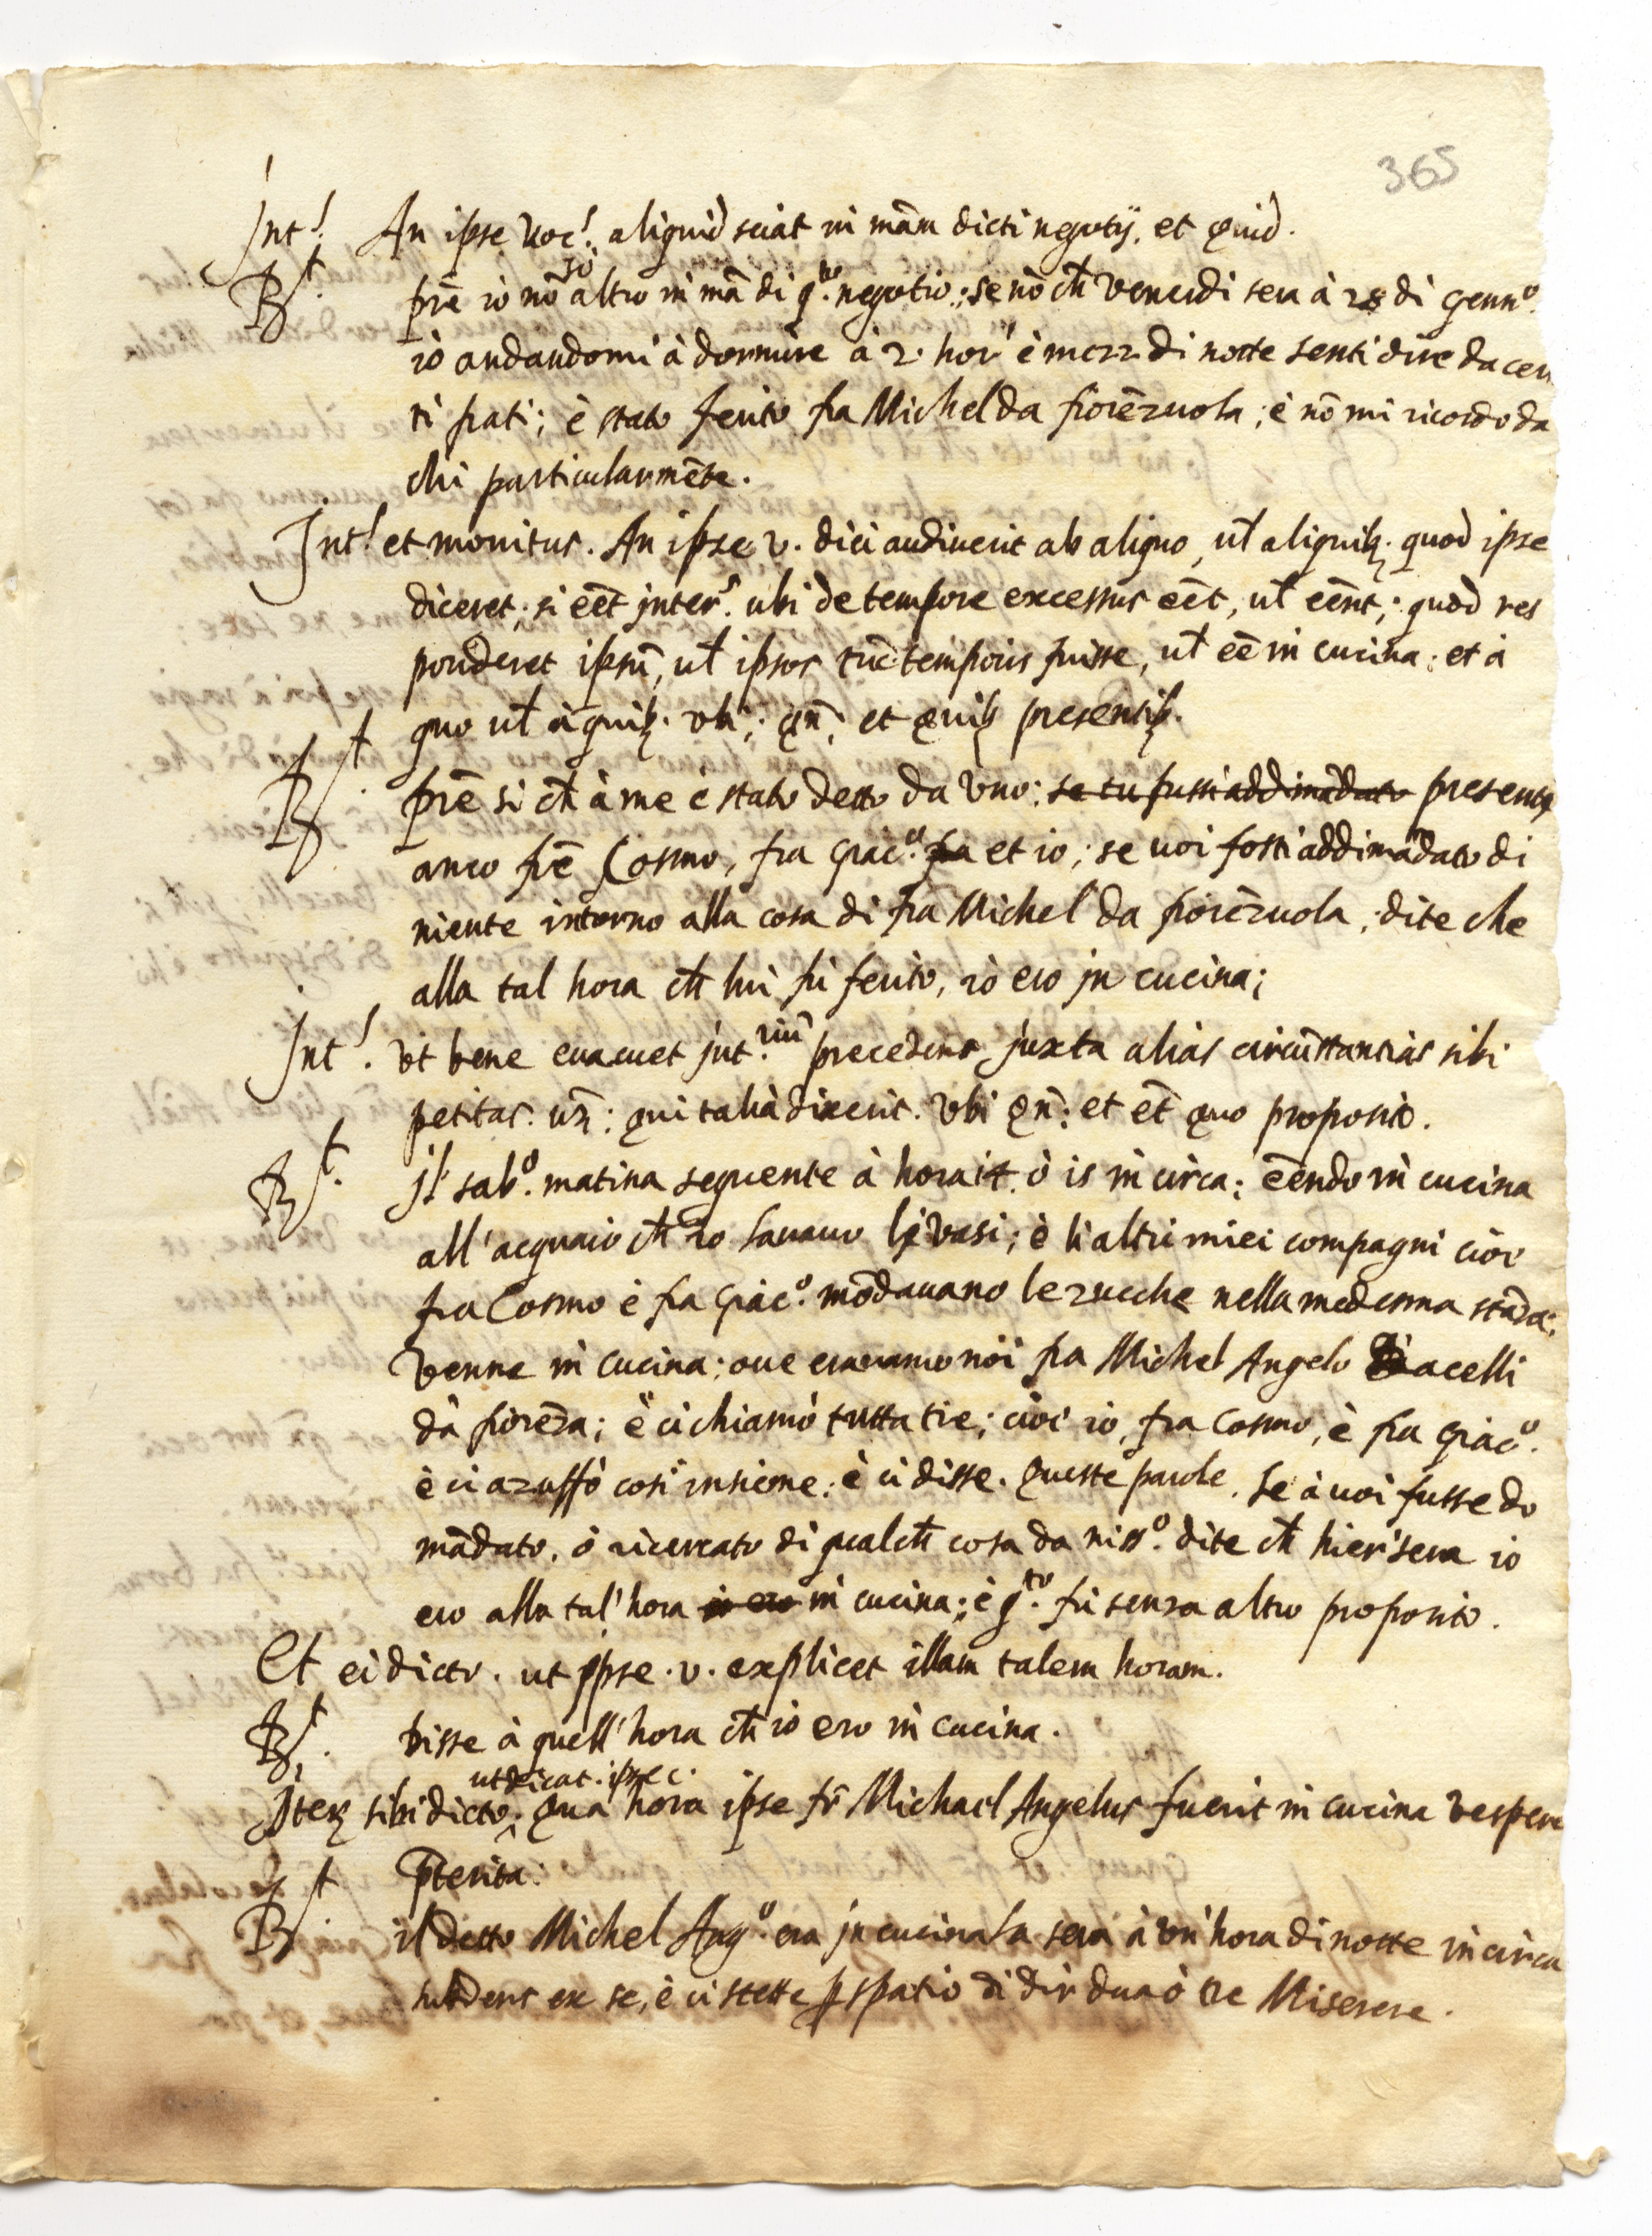 365
Int.^s An ipse voc.^s aliquid sciat in mãm dicti negotij, et quid.
R.^t prẽ io nõ so altro in mã di q.^to negotio; se nõ ch̃ venerdi sera à 28 di Genn.^o
io andandomi à dormire à 2 hor' è mezz di notte senti dire da cer
ti frati; è stato ferito fra Michel da fiorẽzuola; è nõ mi ricordo da
chi particularmẽte.
Int.^s et monitus. An ipse v. dici audiuerit ab aliquo, ut̃ aliquib; quod ipse
diceret; si eẽt inter.^s ubi de tempore excessus eẽt, ut̃ eẽnt; quod res
ponderet ipsũ, ut̃ ipsos tũc temporis fuisse, ut̃ eẽ in cucina; et à
quo ut̃ à quib; vbi; qñ; et quib; presentib;
R.^t prẽ si ch̃ à me è stato detto da vno; se tu fussi addimãdato presente
anco frẽ Cosmo, fra Giac.^o fra et io; se uoi fosti addimãdato di
niente intorno alla cosa di fra Michel da fiorẽzuola, dite che
alla tal hora ch̃ lui fù ferito, io ero in cucina;
Int.^s vt bene euacuet int.^riũ precedens juxta alias circũstantias sibi
petitas. uz̃: qui talia dixerit. Vbi qñ: et eẽt quo proposito.
R.^t il sab.^o matina seguente à hora 14 ò 15 in circa; eẽndo in cucina
all'acquaio ch̃ io lauauo li vasi; è li altri miei compagni cioè
fra Cosmo è fra Giac.^o mõdauano le zucche nella medesma stãza;
venne in cucina; oue erauamo noi fra Michel Angelo Bacelli
dà fiorẽza; è ci chiamò tutta tre; cioè io, fra Cosmo, è fra Giac.^o
è ci azuffò cosi insieme; è ci disse. Queste parole. Se à uoi fusse do
mãdato, ò ricercato di qualch̃ cosa da niss.^o dite ch̃ hier'sera io
ero alla tal'hora io ero in cucina; è q.^to fù senza altro proposito.
Et ei dicto. ut ipse v. explicet illam talem horam.
R.^t Disse à quell'hora ch̃ io ero in cucina.
ut dicat ipse c.
Itez sibi dicto; qua hora ipse fr̃ Michael Angelus fuerit in cucina vespere
p̃terita.
R.^t il detto Michel Ang.^o era in cucina la sera à vn'hora di notte in circa
subdens ex se, è ci stette p spatio di dir dua ò tre Miserere.